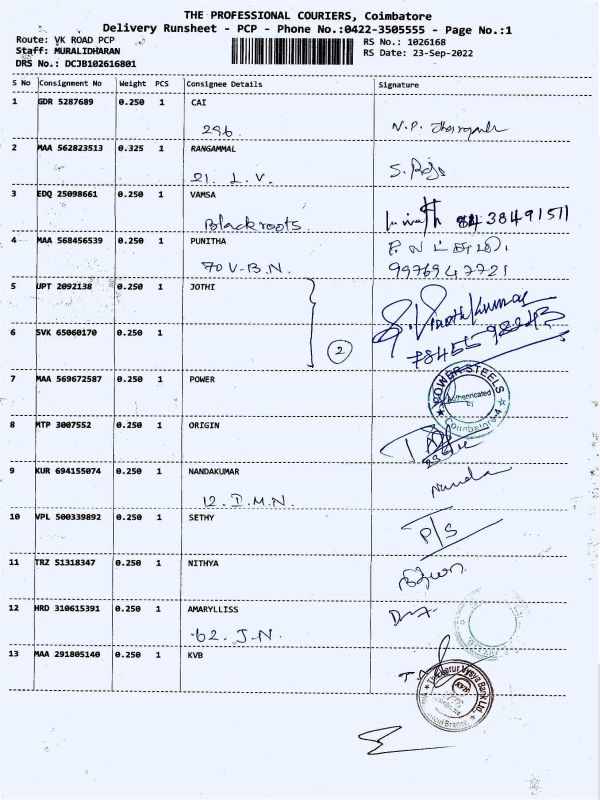 THE PROFESSIONAL COURIERS, Coimbatore
Delivery Runsheet - PCP - Phone No.:0422-3505555 - Page No.:1
Route: VK ROAD PCP
RS No.: 1026168
Staff: MURALIDHARAN
RS Date: 23-Sep-2022
DRS No.: DCJB102616801
S No Consignment No Weight PCS Consignee Details Signature
1 GDR 5287689 0.250 1 CAI
296
2 MAA 562823513 0.325 1 RANGAMMAL
21. L.V.
S. Raja
3 EDQ 25098661 0.250 1 VAMSA
Blackroots.
8438491511
4 MAA 568456539 0.250 1 PUNITHA
70 V.B.N.
9976947721
5 UPT 2092138 0.250 1 JOTHI
6 SVK 65060170 0.250 1
2
7 MAA 569672587 0.250 1 POWER
POWER STEELS
Authenticated
by
Coimbatore-4
8 MTP 3007552 0.250 1 ORIGIN
9 KUR 694155074 0.250 1 NANDAKUMAR
12. D.M.N.
Nanda
10 VPL 500339892 0.250 1 SETHY
P/S
11 TRZ 51318347 0.250 1 NITHYA
12 HRD 310615391 0.250 1 AMARYLLISS
62. J.N.
13 MAA 291805140 0.250 1 KVB
The Karur Vysya Bank Ltd.
KVB